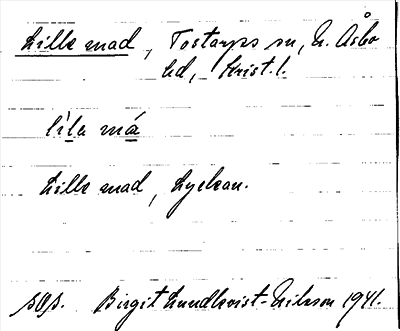 Lille mad, Tostarps sn, N. Åsbo
hd, Krist. l.
lìlu má
Lille mad, Lyckan.
Birgit Lundkvist-Nilsson 1941.